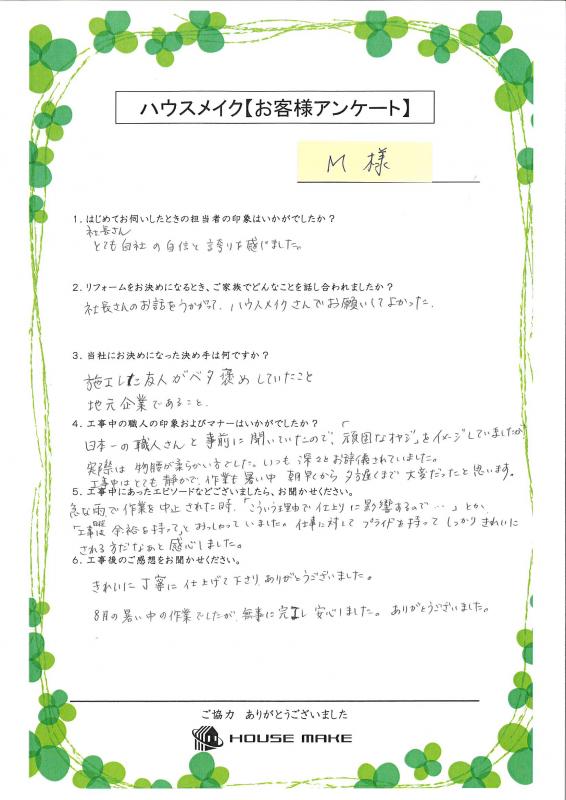 ハウスメイク【お客様アンケート】
M 様
1．はじめてお伺いしたときの担当者の印象はいかがでしたか？
社長さん
とても自社の自信と誇りを感じました。
2．リフォームをお決めになるとき、ご家族でどんなことを話し合われましたか？
社長さんのお話をうかがって、ハウスメイクさんでお願いしてよかった。
3．当社にお決めになった決め手は何ですか？
施工した友人がベタ褒めしていたこと
地元企業であること。
4．工事中の職人の印象およびマナーはいかがでしたか？
日本一の職人さんと事前に聞いていたので、「頑固なオヤジ」をイメージしていましたが
実際は物腰が柔らかい方でした。いつも深々とお辞儀されていました。
工事中はとても静かで、作業も暑い中 朝早くから夕方遅くまで大変だったと思います。
5．工事中にあったエピソードなどございましたら、お聞かせください。
急な雨で作業を中止された時、「こういう理由で仕上りに影響するので…」とか
「工事は余裕を持って」とおっしゃっていました。仕事に対してプライドを持ってしっかりきれいに
される方だなぁと感心しました。
6．工事後のご感想をお聞かせください。
きれいに丁寧に仕上げて下さりありがとうございました。
8月の暑い中の作業でしたが、無事に完工し安心しました。ありがとうございました。
ご協力 ありがとうございました
HOUSE MAKE